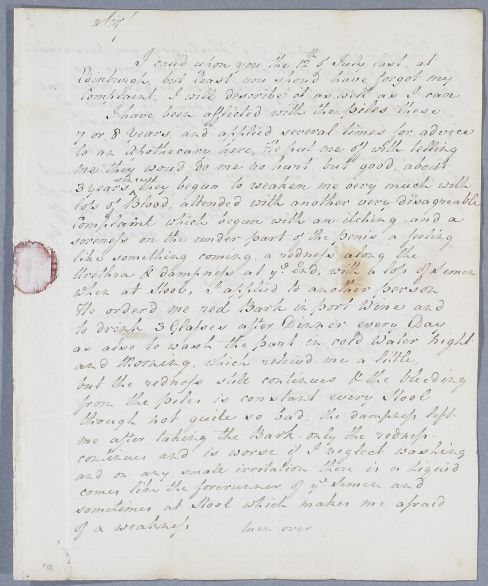 Sir/
I cal'd upon you the 12th of July last, at
Edinburgh, but least you should have forgot my
Complaint, I will describe it as well as I can
I have been afflicted with the Piles these
7 or 8 Years, and applied several times for advice
to an Apothecary here, He put me of with telling
me they would do me no hurt but good, about
3 years since they begun to weaken me very much with
loss of Blood, attended with another very disagreeable
Complaint which begun with an itching and a
soreness on the under part of the penis a feeling
like something coming, a redness along the
Urethra & dampness at ye End, with a loss of Semen
when at Stool, I applied to another person
He orderd me red Bark in Port Wine and
to drink 3 Glasses after Dinner every Day
as also to wash the part in cold Water Night
and Morning, which reliev'd me a little,
but the redness still continues & the bleeding
from the Piles is constant every Stool
though not quite so bad, the dampness left
me after taking the Bark, only the redness
continues and is worse if I neglect washing
and on any small irritation there is a liquid
comes like the forerunner of ye Semen and
sometimes at Stool which makes me afraid
of a weakness
turn over